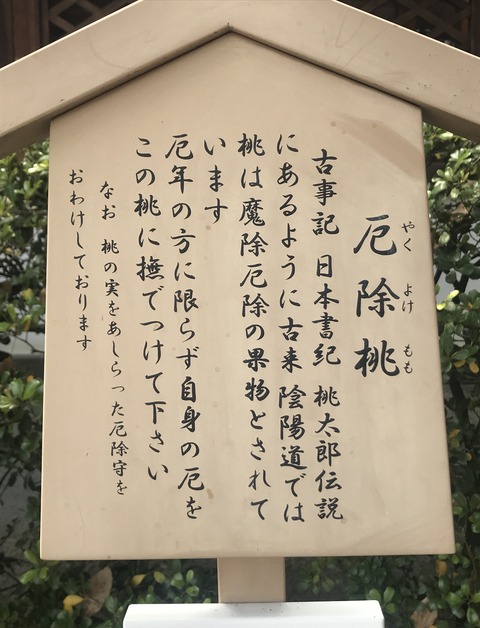 厄除桃
やくよけもも
古事記 日本書紀 桃太郎伝説
にあるように古来 陰陽道では
桃は魔除厄除の果物とされて
います
厄年の方に限らず自身の厄を
この桃に撫でつけて下さい
なお 桃の実をあしらった厄除守を
おわけしております